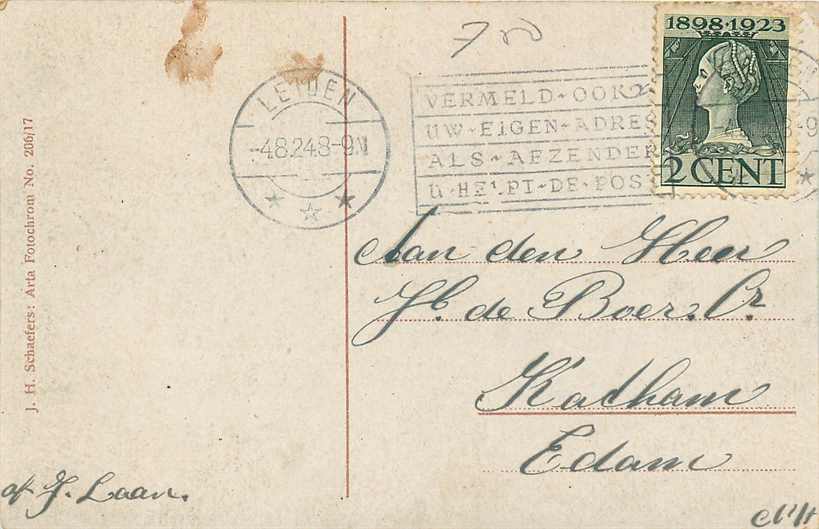 700
1898·1923
2 CENT
LEIDEN
-4.8.24.8-9N
VERMELD-OOK
UW-EIGEN-ADRES
ALS-AFZENDER
U-HELPT-DE-POST
Aan den Heer
Jb. de Boer. Cr.
Kadham
Edam
af J. Laan.
J. H. Schaefers: Arta Fotochrom No. 206/17